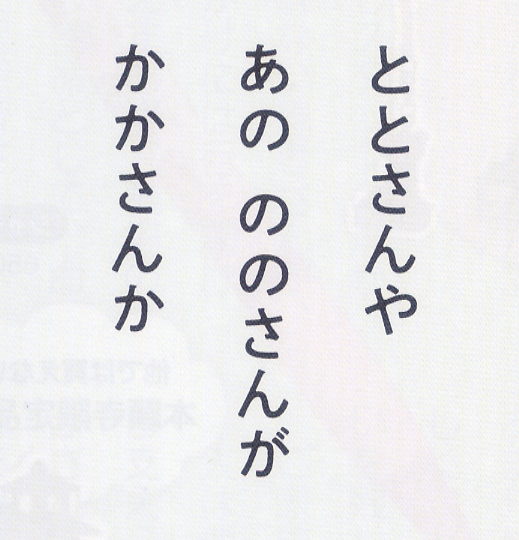 ととさんや
あの ののさんが
かかさんか